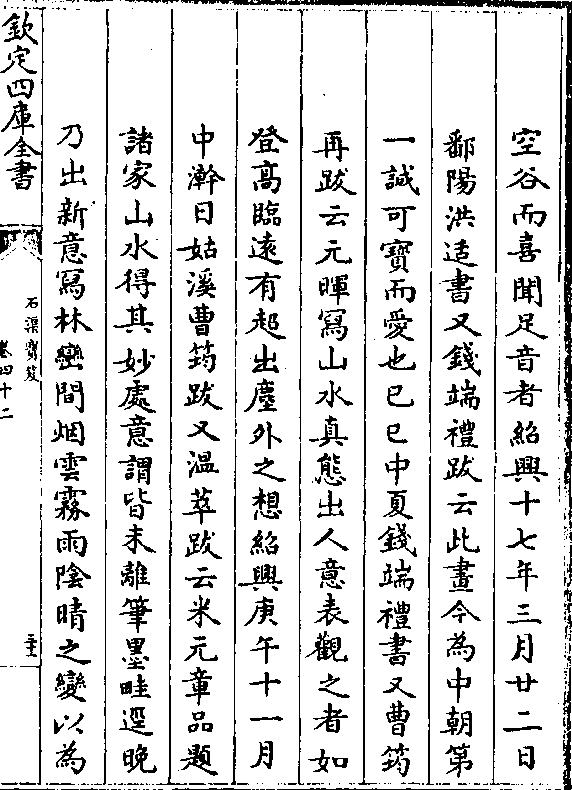 空谷而喜聞足音者紹興十七年三月廿二日
鄱陽洪适書又錢端禮跋云此畫今為中朝第
一誠可寶而愛也已巳中夏錢端禮書又曹筠
再跋云元暉寫山水真態出人意表觀之者如
登髙臨遠有超出塵外之想紹興庚午十一月
中澣日姑溪曹筠跋又溫萃跋云米元章品題
諸家山水得其妙處意謂皆未離筆墨畦逕晚
乃出新意寫林巒間烟雲霧雨陰晴之變以為
欽定四庫全書
石渠寶笈
卷四十二